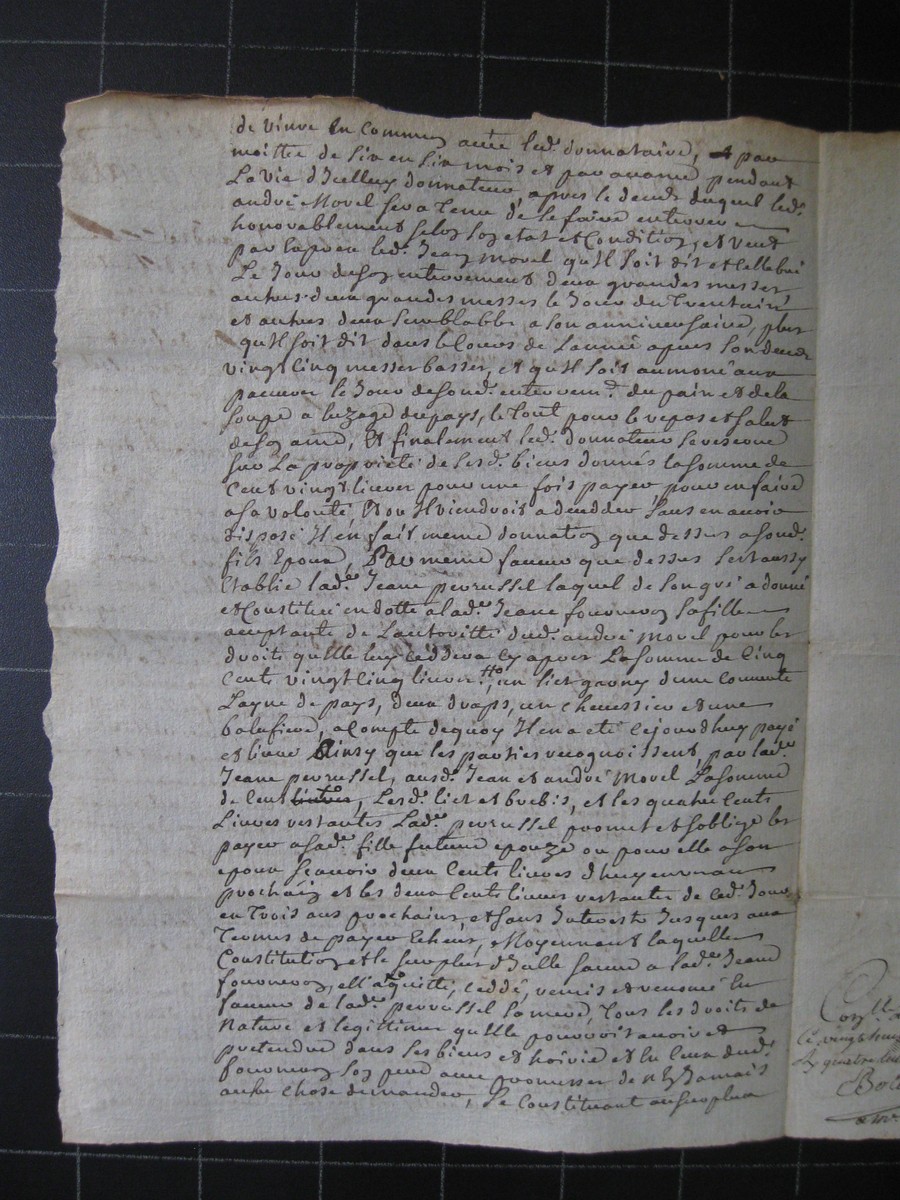 de vivre en commun avec led. donnataire, par
moittee de six en six mois et par avance pendant
La vie d'Icelluy donnateur, apres le deceds duquel led.
andré Morel sera Tenu de le faire enterrer
honorablement selon son etat et Condition, et veut
par Expres led. Jean Morel qu'Il soit dit et cellebré
Le Jour de son enterrement deux grandes messes
autres deux grandes messes le Jour du Trentain
et autres deux semblables a son anniversaire, plus
qu'Il soit dit dans le cours de Lannée apres son deceds
vingt cinq messes basses, et qu'Il soit aumoné aux
pauvres le Jour de sond. enterrem. du pain et de la
soupe a luzage du pays, le Tout pour le repos et salut
de son ame, Et finalement led. donnateur se reserve
sur La proprieté de sesd. biens donnés la somme de
Cent vingt livres pour une fois payer pour en faire
a sa volonté, Et ou Il viendroit a decedder sans en avoir
disposé Il en fait meme donnation que dessus a sond.
fils Epoux, Par meme faveur que dessus sest aussy
Etablie lad. Jeane peyrussel laquel de son gré a donné
et Constitué en dotte a lad. Jeane fournroy sa fille
acceptante de Lautoritté dud. andré Morel pour les
droits qu'Elle luy ceddera cy apres La somme de Cinq
Cents vingt cinq livres, un liet garny d'une Couverte
Layne de pays, deux draps, un chevessier et une
a Compte de quoy Il en a eté cejourdhuy payé
et livré Ainsy que les parties recognoissent, par lad.
Jeane peyrussel, ausd. Jean et andré Morel La somme
de Cent livres, Lesd. liet et brebis, et les quatre Cents
Livres restantes Lad. peyrussel promet et soblige les
payer a sad. fille future epouze ou pour elle a son
epoux scavoir deux Cents livres d'huy en un an
prochain et les deux Cents livres restantes de ced. Jour
en Trois ans prochains, et sans Interests Jusques aux
Termes de payer Echeus, Moyennent laquelle
Constitution et le surplus d'Icelle sauve a lad. Jeane
fournroy, ell'a quitté, ceddé, remis et renoncé en
faveur de lad. peyrussel sa mere, Tous les droits de
Nature et legittimes qu'Elle pourroit avoir et
pretendre dans ses biens et hoirie et en Ceux dud.
fournroy son pere avec promesses de n'y Jamais
autre chose demander, Se Constituant au surplus